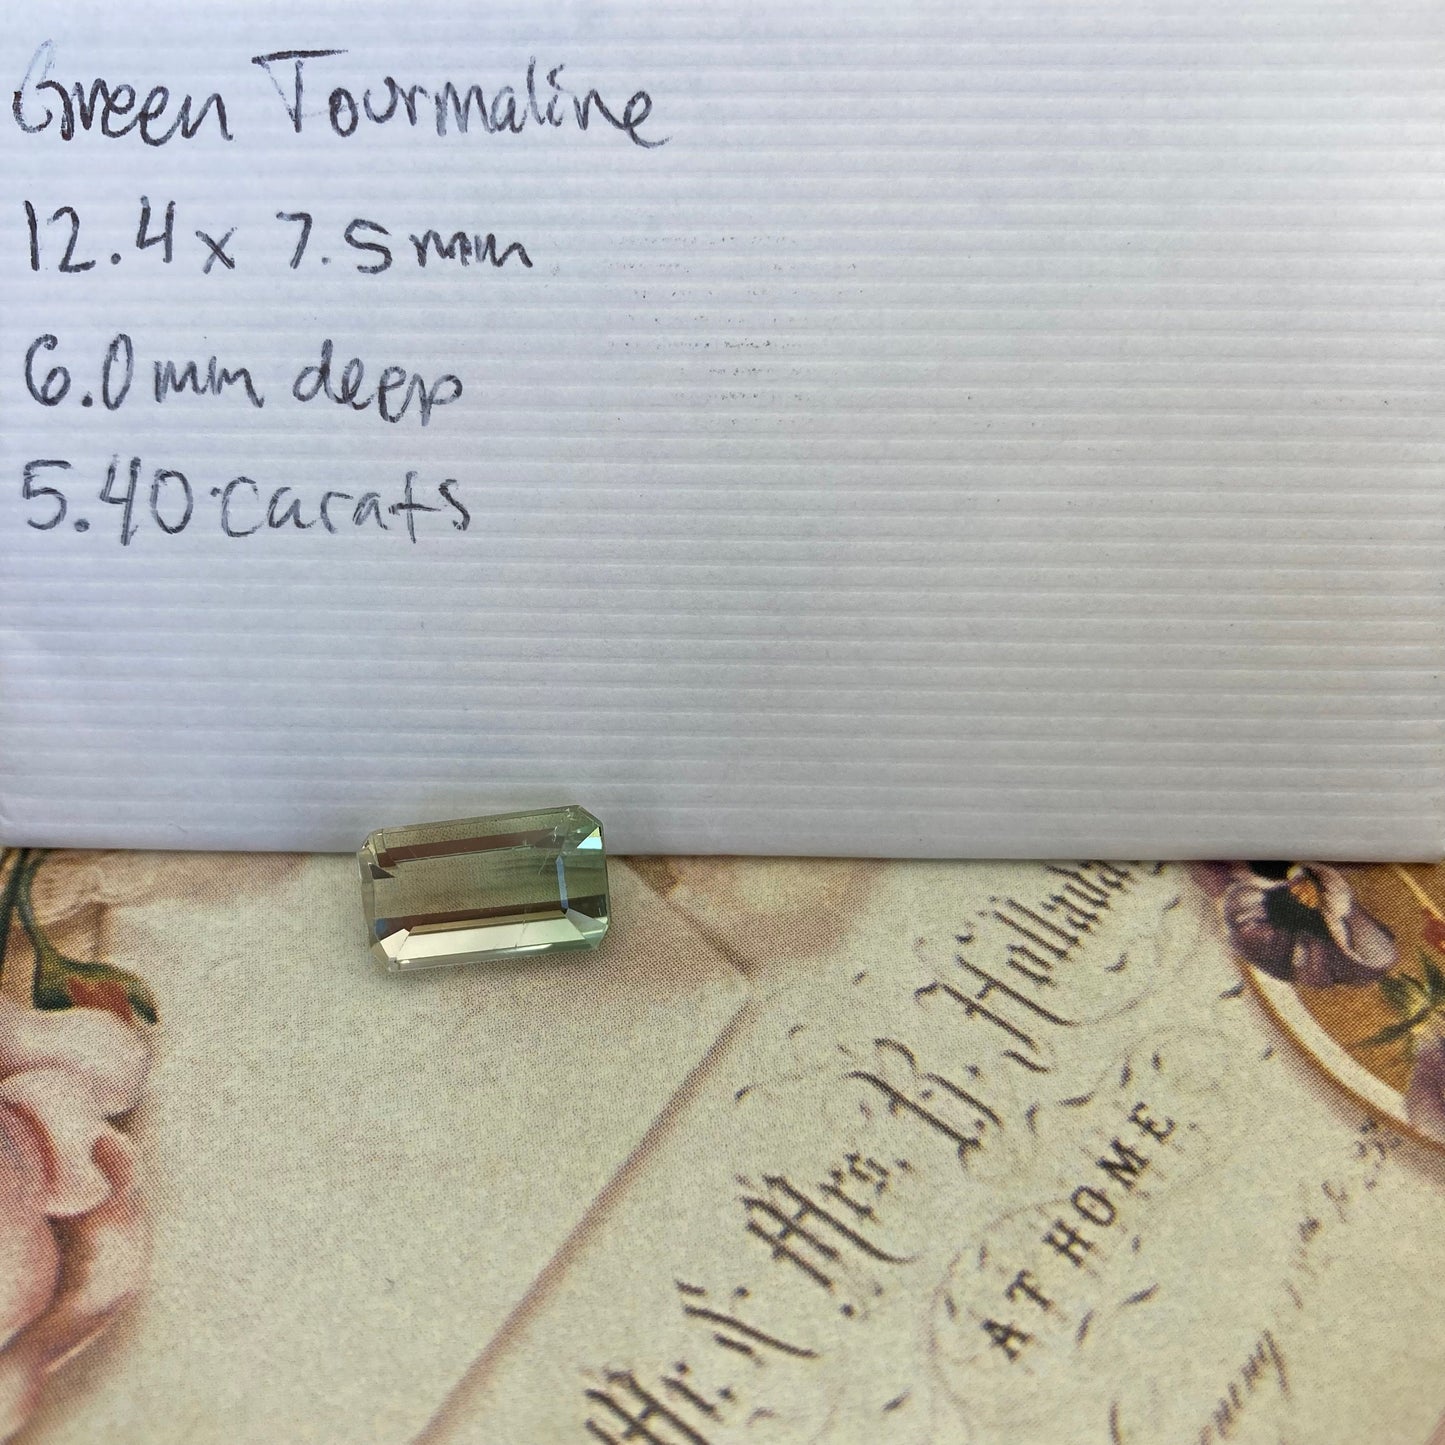 Green Tourmaline
12.4 x 7.5mm
6.0mm deep
5.40 carats
Mr. & Mrs. B. Hollada
AT HOME